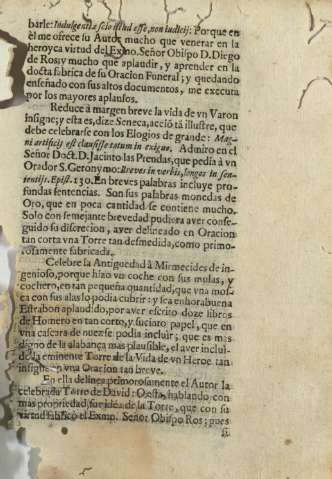 barle: Indulgentiæ solo illud esse, non iudicij: Porque en
èl me ofrece su Autor mucho que venerar en la
heroyca virtud del Exmo. Señor Obispo D. Diego
de Ros; y mucho que aplaudir, y aprender en la
docta fabrica de su Oracion Funeral; y quedando
enseñado con sus altos documentos, me executa
por los mayores aplausos.
Reduce à margen breve la vida de vn Varon
insigne; y esta es, dize Seneca, acciō tā illustre, que
debe celebrarse con los Elogios de grande: Mag-
ni artificis est clausisse totum in exiguo. Admiro en el
Señor Doct. D. Jacinto las Prendas, que pedia à vn
Orador S. Geronymo: Breves in verbis, longos in sen-
tentijs. Epist. 130. En breves palabras incluye pro-
fundas sentencias. Son sus palabras monedas de
Oro, que en poca cantidad se contiene mucho.
Solo con semejante brevedad pudiera aver conse-
guido su discrecion, aver delineado en Oracion
tan corta vna Torre tan desmedida, como primo-
rosamente fabricada.
Celebre la Antiguedad à Mirmecides de in-
genioso, porque hizo vn coche con sus mulas, y
cochero, en tan pequeña quantidad, que vna mos-
ca con sus alas lo podia cubrir: y sea enhorabuena
Estrabon aplaudido, por aver escrito doze libros
de Homero en tan corto, y sucinto papel, que en
vna cascara de nuez se podia incluir; que es mas
digno de la alabança mas plausible, el aver inclui-
do la eminente Torre de la Vida de vn Heroe tan
insigne en vna Oracion tan breve.
En ella delinea primorosamente el Autor la
celebrada Torre de David: O esta, hablando con
mas propriedad, fue idéa de la Torre, que con su
virtud fabricò el Exmo. Señor Obispo Ros; pues
si